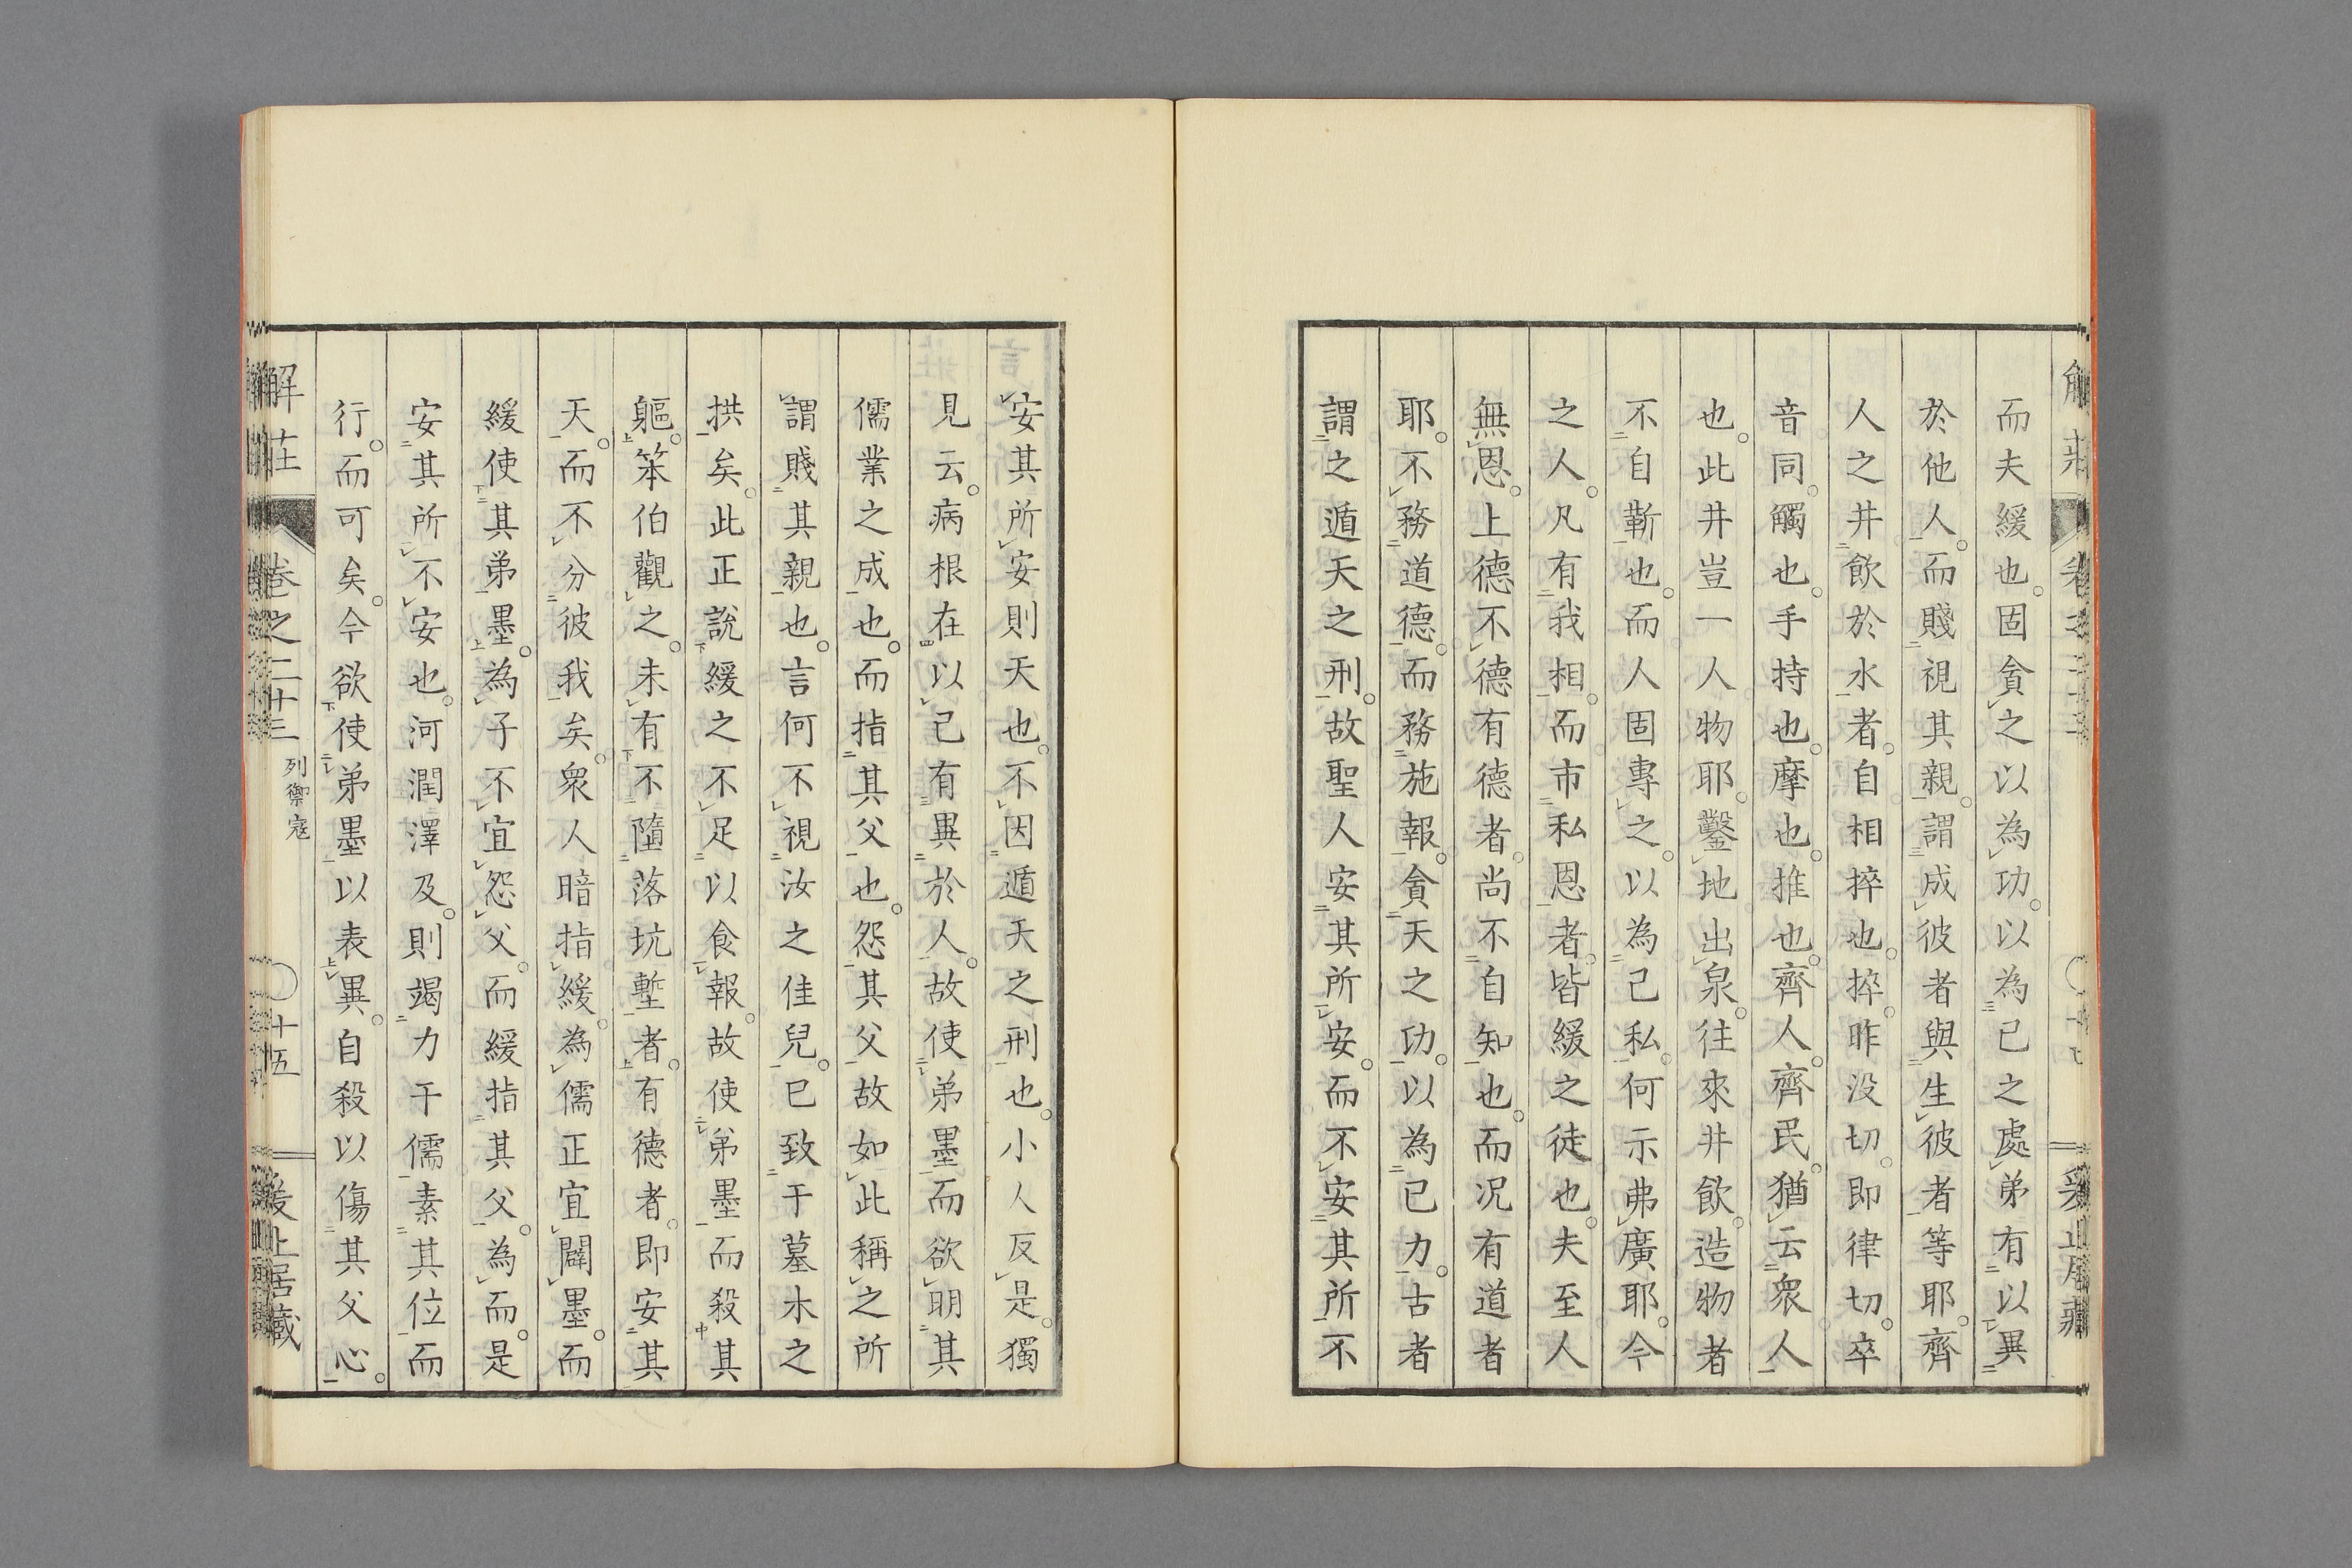 而夫緩也固貪之以為功以為己之處弟有以異
於他人而賤視其親謂成彼者與生彼者等耶齊
人之井飲於水者自相捽也捽昨没切即律切卒
音同觸也手持也摩也推也齊人齊民猶云衆人
也此井豈一人物耶鑿地出泉往來井飲造物者
不自靳也而人固專之以為己私何示弗廣耶今
之人凡有我相而市私恩者皆緩之徒也夫至人
無恩上德不德有德者尚不自知也而况有道者
耶不務道德而務施報貪天之功以為己力古者
謂之遁天之刑故聖人安其所安而不安其所不
安其所安則天也不因遁天之刑也小人反是獨
見云病根在以己有異於人故使弟墨而欲明其
儒業之成也而指其父也怨其父故如此稱之所
謂賤其親也言何不視汝之佳兒已致于墓木之
拱矣此正說緩之不足以食報故使弟墨而殺其
軀笨伯觀之未有不隨落坑塹者有德者即安其
天而不分彼我矣衆人暗指緩為儒正宜闢墨而
緩使其弟墨為子不宜怨父而緩指其父為而是
安其所不安也河潤澤及則竭力于儒素其位而
行而可矣今欲使弟墨以表異自殺以傷其父心
解莊 卷之二十三 列禦寇 十五